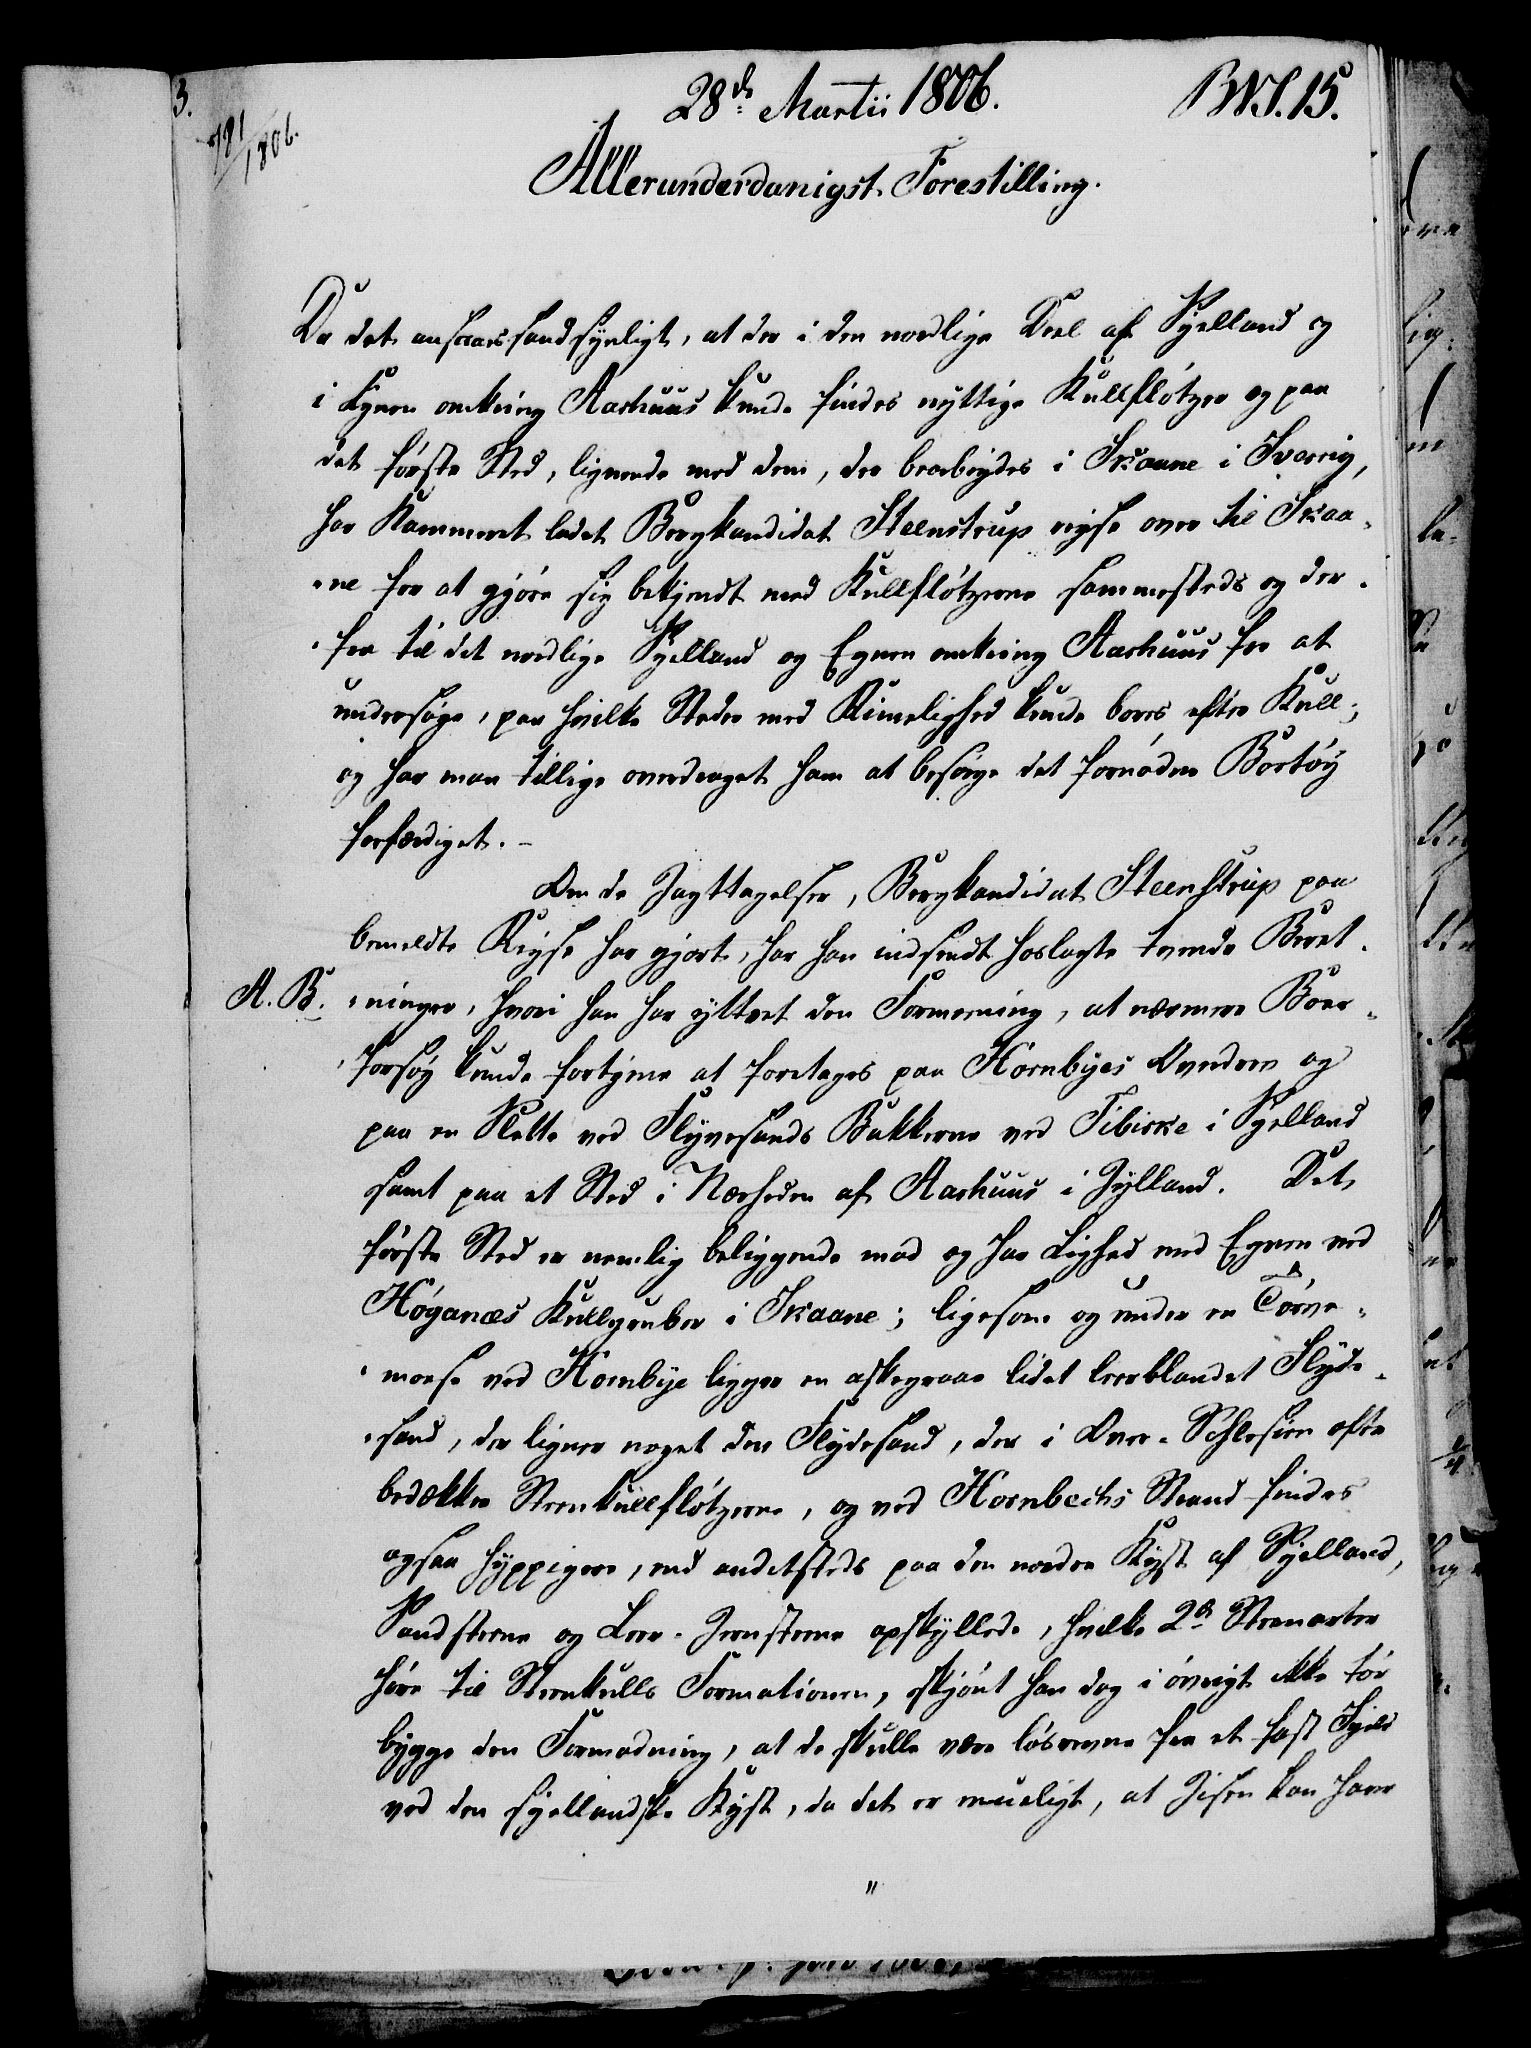 3.
28de Martii 1806.
BWS. 15.
781/1806.
Allerunderdanigst Forestilling.
Da det ansaaes sandsynligt, at der i den nordlige Deel af Sjelland og
i Egnen omkring Aarhuus kunde findes nyttige Kullflötzer og paa
det förste Sted, lignende med dem, der bearbeydes i Skaane i Sverrig,
har Kammeret ladet Bergkandidat Steenstrup reyse over til Skaa-
-ne for at gjöre sig bekjendt med Kullflötzerne sammesteds og der-
-fra til det nordlige Sjelland og Egnen omkring Aarhuus for at
undersöge, paa hvilke Steder med Rimelighed kunde bores efter Kull;
og har man tillige overdraget ham at besörge det fornödne Bortöy
forfærdiget.-
Om de Iagttagelser, Bergkandidat Steenstrup paa
bemeldte Reyse har gjort, har han indsendt hoslagte tvende Beret-
A. B.
-ninger, hvori han har yttret den Formening, at nærmere Boer-
-forsög kunde fortjene at foretages paa Hornbyes Overdrev og
paa en Slette ved Flyvesands Bakkerne ved Tibirke i Sjelland
samt paa et Sted i Nærheden af Aarhuus i Jylland. Det
förste Sted er nemlig beliggende mod og har Lighed med Egnen ved
Höganæs Kullgruber i Skaane; ligesom og under en Törve-
-mose ved Hornbye ligger en askegraae lidet leerblandet Flyde-
-sand, der ligner noget den Flydesand, der i Over-Schlesien ofte
bedækker Steenkullflötzerne, og ved Hornbechs Strand findes
ogsaa hyppigere, end andetsteds paa den nordre Kyst af Sjelland,
Sandsteene og Leer-Jernsteene opskyllede, hvilke 2de Steenarter
höre til Steenkulls Formationen, skjönt han dog i övrigt ikke tör
bygge den Formodning, at de skulle være lösrevne fra et fast Fjeld
ved den sjellandske Kyst, da det er mueligt, at Iisen kan have
"